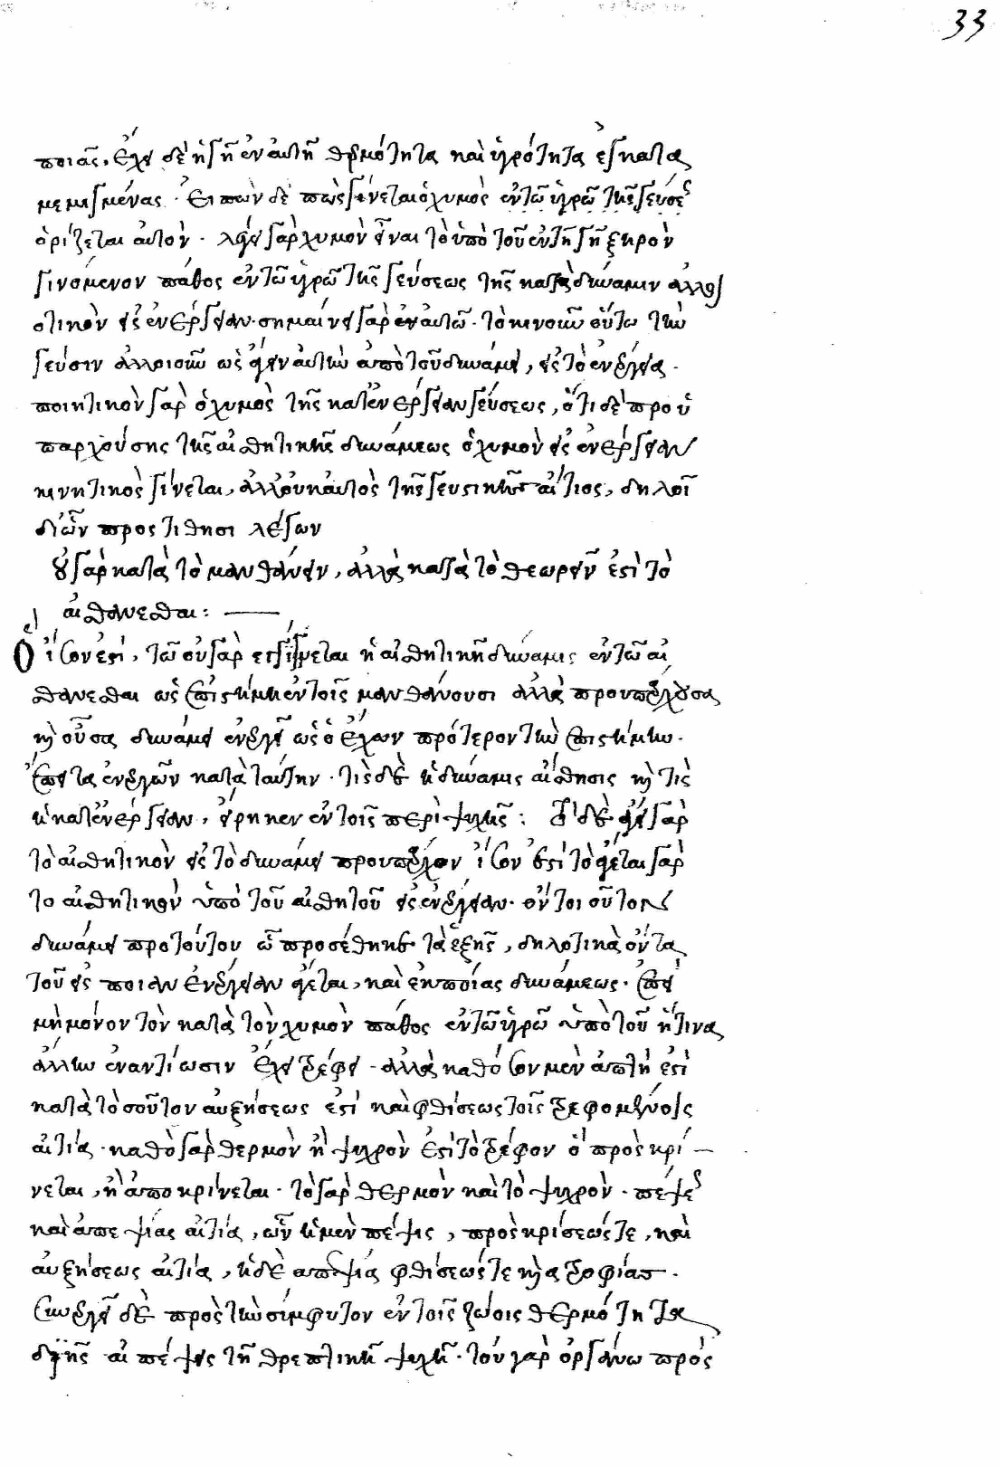 33
ποιᾶς. ἔχει δὲ ἡ γῆ ἐν αὐτῇ θερμότητα καὶ ὑγρότητα ἐγκατα
μεμιγμένας. εἰπὼν δὲ πῶς γίνεται ὁ χυμὸς ἐν τῶ ὑγρῶ τῆς γεύσεως
ὁρίζεται αὐτὸν. λέγει γὰρ χυμὸν εἶναι τὸ ὑπὸ τοῦ ἐν τῇ γῇ ξηρὸν
γινόμενον πάθος ἐν τῶ ὑγρῶ τῆς γεύσεως τῆς κατὰ δύναμιν ἀλλοι
οτικὸν εἰς ἐνέργειαν. σημαίνει γὰρ ἐν αὐτῶ. τὸ κινοῦν οὕτω τὴν
γεύσιν ἀλλοιοῦν ὡς ἄγειν αὐτὴν ἀπὸ τοῦ δυνάμει, εἰς τὸ ἐνεργείας.
ποιητικὸν γὰρ ὁ χυμὸς τῆς κατ' ἐνέργειαν γεύσεως, ὅτι δὲ προϋ
παρχούσης τῆς αἰσθητικῆς δυνάμεως ὁ χυμὸν εἰς ἐνέργειαν
κινητικὸς γίνεται, ἀλλ' οὐκ αὐτὸς τῆς γευστικῆς αἴτιος, δηλοῖ
δι' ὧν προστίθησι λέγων
οὐ γὰρ κατὰ τὸ μανθάνειν, ἀλλὰ κατὰ τὸ θεωρεῖν ἐστὶ τὸ
αἰσθάνεσθαι:
Ὅ ἴσον ἐστί, τῶ οὐ γὰρ ἐγγίνεται ἡ αἰσθητικὴ δύναμις ἐν τῶ αἰ
σθάνεσθαι ὡς ἐπιστήμη ἐν τοῖς μανθάνουσι ἀλλὰ προυπάρχουσα
καὶ οὖσα δυνάμει ἐνεργεῖ ὡς ὁ ἔχων πρότερον τὴν ἐπιστήμην.
ἔπειτα ἐνεργῶν κατὰ ταύτην. τίς δὲ ἡ δύναμις αἴσθησις καὶ τίς
ἡ κατ' ἐνέργειαν, εἴρηκεν ἐν τοῖς περὶ ψυχῆς: Τὸ δὲ ἄγει γὰρ
τὸ αἰσθητικὸν εἰς τὸ δυνάμει προυπάρχον ἴσον ἐστὶ τὸ ἄγεται γὰρ
το αἰσθητικὸν ὑπὸ τοῦ αἰσθητοῦ εἰς ἐνέργειαν. ὄν τοι οὗτον
δυνάμει προτούτου ὧ προσέθηκε τὰ ἑξῆς, δηλοτικὰ ὄντα
τοῦ εἰς ποιαν ἐνέργειαν ἄγεται, καὶ ἐκ ποίας δυνάμεως. ἐπεὶ
μὴ μόνον τὸν κατὰ τὸν χυμὸν πάθος ἐν τῶ ὑγρῶ ὑπὸ τοῦ ἥτινας
ἄλλην ἐναντίωσιν ἔχει τρέφει. ἀλλὰ καθόσον μὲν ἁπτή ἐστὶ
κατὰ τὸ σοῦτον αὐξήσεως ἐστὶ καὶ φθίσεως τοῖς τρεφομένοις
αἰτία. καθὸ γὰρ θερμὸν ἢ ψυχρὸν ἐστὶ τὸ τρέφον ὁ προσκρί
νεται, ἢ ἀποκρίνεται. τὸ γὰρ θερμὸν καὶ τὸ ψυχρὸν. πέψεως
καὶ ἀπεψίας αἰτία, ὧν ἡ μὲν πέψις, προσκρίσεώς τε, καὶ
αὐξήσεως αἰτία, ἡ δὲ ἀπεψία φθίσεώς τε καὶ ατροφίας.
συνεργεῖ δὲ πρὸς τὴν σύμφυτον ἐν τοῖς ζώοις θερμότητα
δι' ἧς αἱ πέψεις τῇ θρεπτικῇ ψυχῇ. τούγαρ ὀργάνω πρὸς